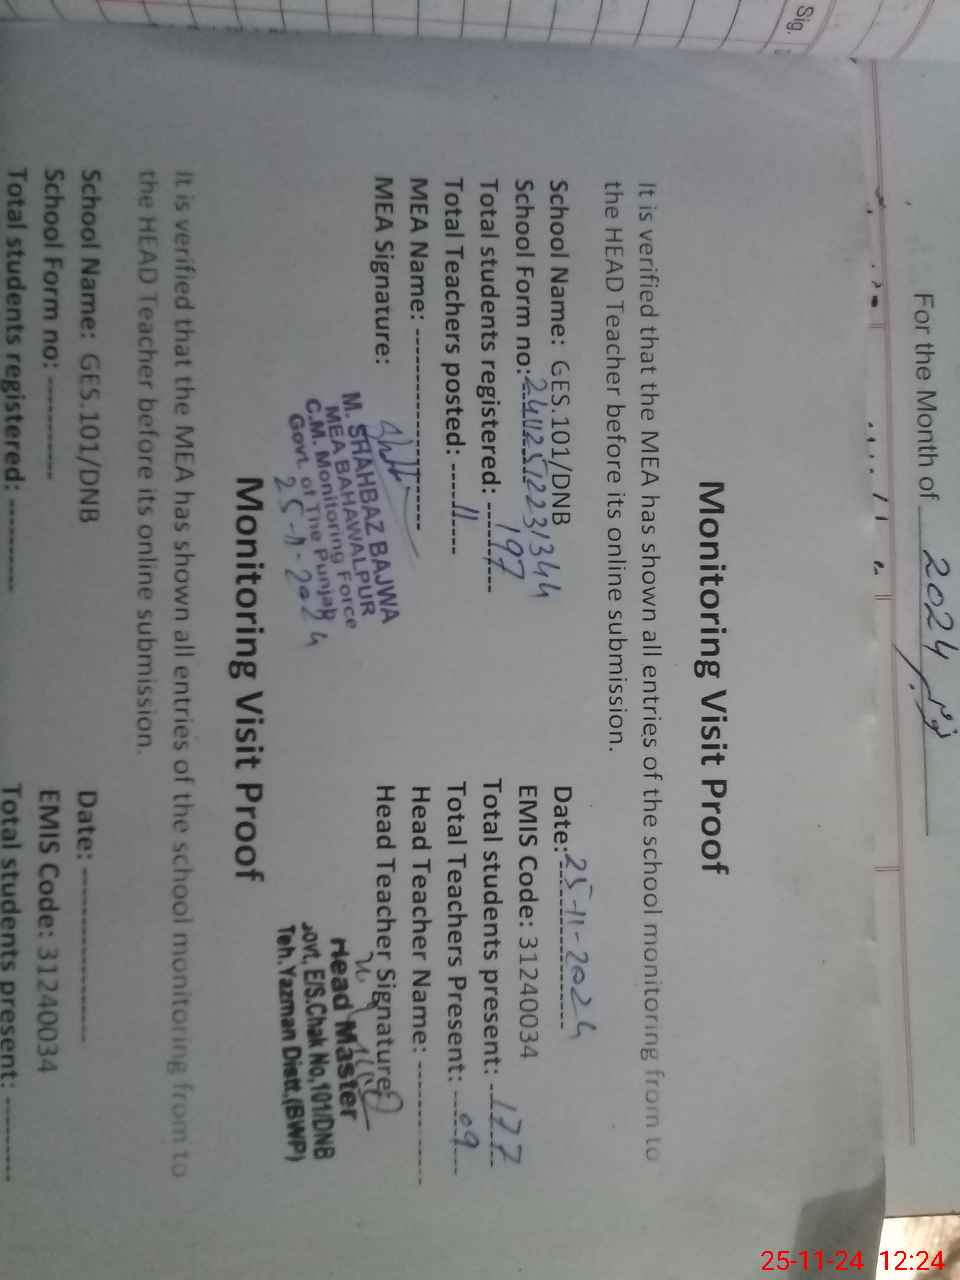 Sig.
For the Month of 2024 نومبر
Monitoring Visit Proof
It is verified that the MEA has shown all entries of the school monitoring from to
the HEAD Teacher before its online submission.
School Name: GES.101/DNB Date: 25-11-2024
School Form no: EMIS Code: 31240034
Total students registered: 197 Total students present: 177
Total Teachers posted: 11 Total Teachers Present: 09
MEA Name: Head Teacher Name:
MEA Signature: Head Teacher Signature:
M. SHAHBAZ BAJWA
MEA BAHAWALPUR
C.M. Monitoring Force
Govt. of The Punjab
25-11-2024
Head Master
Govt. E/S.Chak No,101/DNB
Teh.Yazman Distt.(BWP)
Monitoring Visit Proof
It is verified that the MEA has shown all entries of the school monitoring from to
the HEAD Teacher before its online submission.
School Name: GES.101/DNB Date:
School Form no: EMIS Code: 31240034
Total students registered: Total students present:
25-11-24 12:24